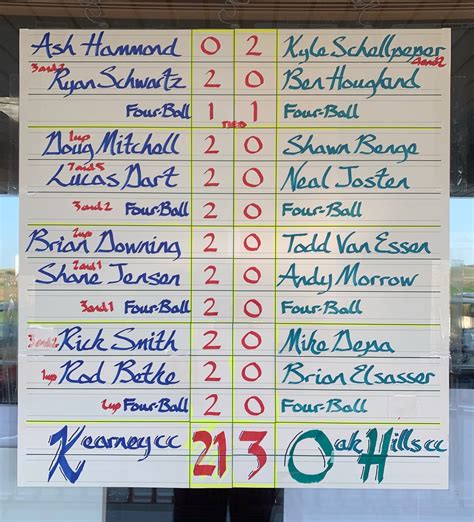 Ash Hammond 0 2 Kyle Schellpeper
3and2 4and2
Ryan Schwartz 2 0 Ben Hougland
Four-Ball 1 1 Four-Ball
TIED
1up
Doug Mitchell 2 0 Shawn Benge
7and5
Lucas Dart 2 0 Neal Josten
3and2 Four-Ball 2 0 Four-Ball
2up
Brian Downing 2 0 Todd Van Essen
2and1
Shane Jensen 2 0 Andy Morrow
3and1 Four-Ball 2 0 Four-Ball
3and2 Rick Smith 2 0 Mike Depa
1up Rod Betke 2 0 Brian Elsasser
1up Four-Ball 2 0 Four-Ball
Kearney cc 21 3 Oak Hills cc